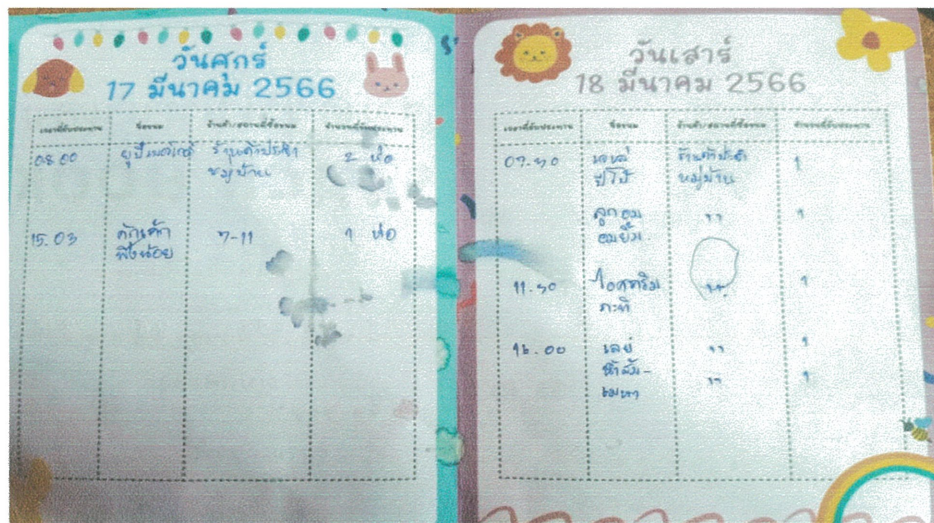 วันศุกร์
17 มีนาคม 2566
เวลาที่รับประทาน ชื่อขนม ร้านค้า/สถานที่ซื้อขนม จำนวนที่รับประทาน
08.00 ร้านค้าประจำ 2 ห่อ
หมู่บ้าน
15.03 7-11 1 ห่อ
วันเสาร์
18 มีนาคม 2566
เวลาที่รับประทาน ชื่อขนม ร้านค้า/สถานที่ซื้อขนม จำนวนที่รับประทาน
07.30 ร้านค้าประจำ 1
ปูไป้ หมู่บ้าน
ลูกอม " 1
อมยิ้ม
11.30 ไอศกรีม " 1
กะทิ
16.00 เลย์ " 1
" 1